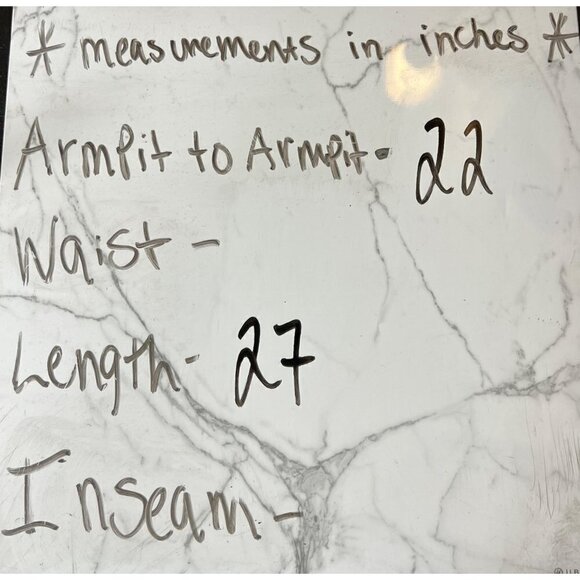 * measurements in inches *
Armpit to Armpit- 22
Waist -
Length- 27
Inseam -